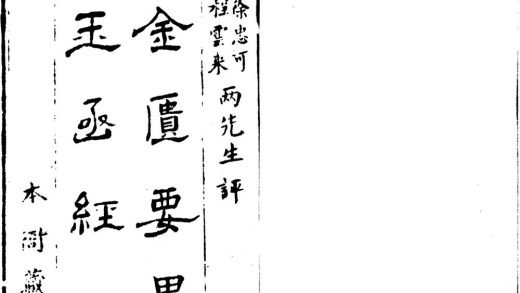 徐忠可
程雲来
两先生評
金匱要畧
玉函經
本衙藏